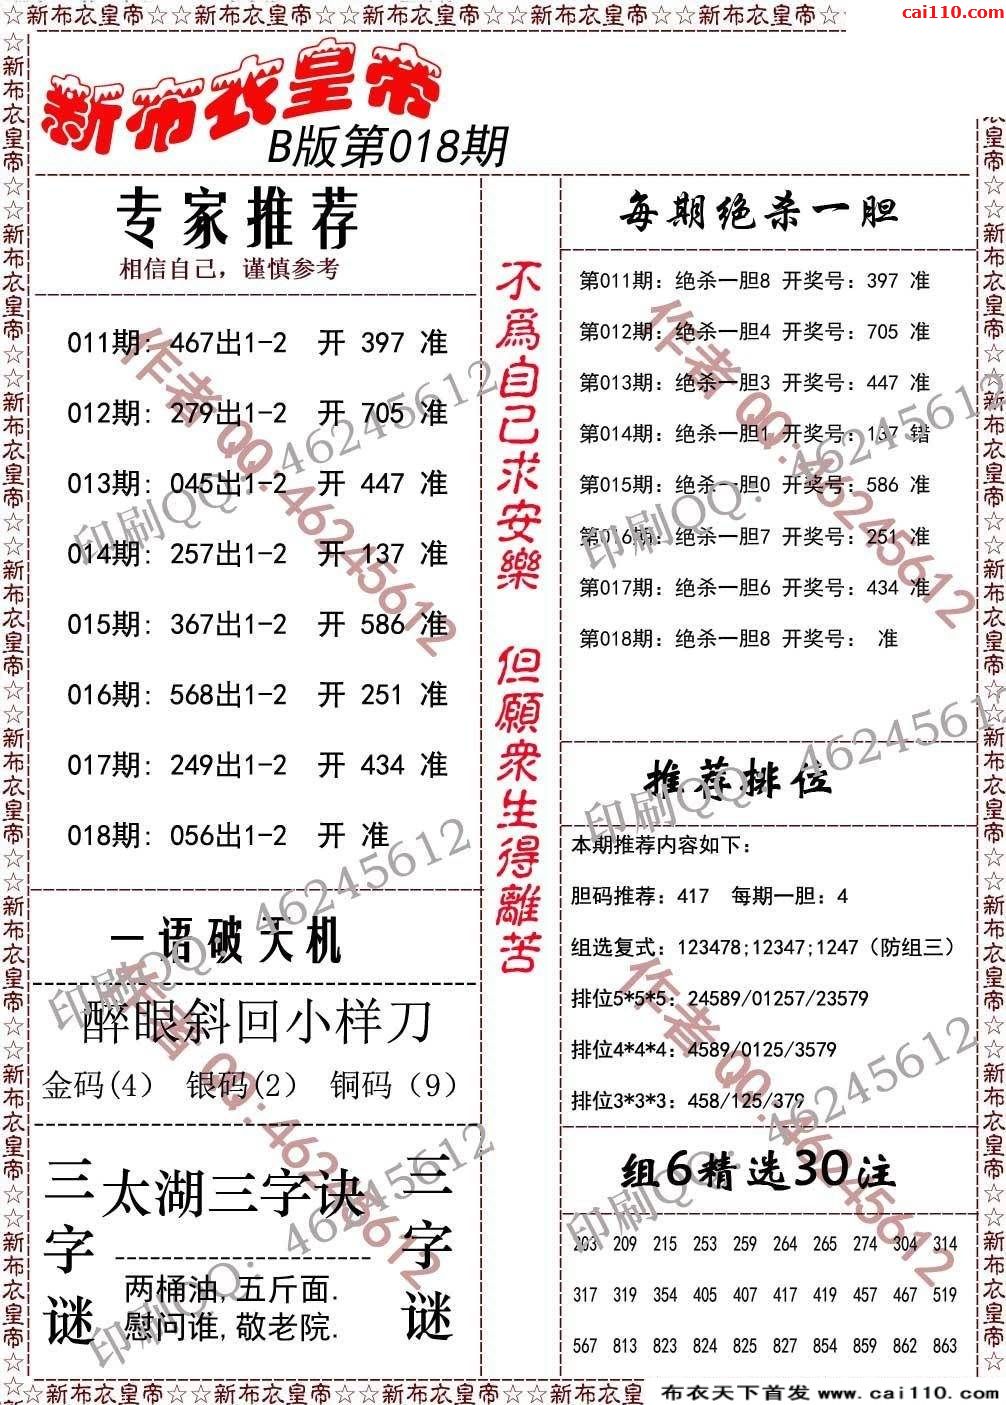 ☆新布衣皇帝☆新布衣皇帝☆新布衣皇帝☆新布衣皇帝☆新布衣皇帝☆新布衣皇帝☆新布衣皇帝☆
cai110.com
新布衣皇帝
B版第018期
专家推荐
相信自己，谨慎参考
011期: 467出1-2 开 397 准
012期: 279出1-2 开 705 准
013期: 045出1-2 开 447 准
014期: 257出1-2 开 137 准
015期: 367出1-2 开 586 准
016期: 568出1-2 开 251 准
017期: 249出1-2 开 434 准
018期: 056出1-2 开 准
一语破天机
醉眼斜回小样刀
金码(4) 银码(2) 铜码（9）
三字谜
太湖三字诀
两桶油,五斤面.
慰问谁,敬老院.
三字谜
不為自己求安樂 但願衆生得離苦
每期绝杀一胆
第011期: 绝杀一胆8 开奖号: 397 准
第012期: 绝杀一胆4 开奖号: 705 准
第013期: 绝杀一胆3 开奖号: 447 准
第014期: 绝杀一胆1 开奖号: 137 错
第015期: 绝杀一胆0 开奖号: 586 准
第016期: 绝杀一胆7 开奖号: 251 准
第017期: 绝杀一胆6 开奖号: 434 准
第018期: 绝杀一胆8 开奖号: 准
推荐排位
本期推荐内容如下:
胆码推荐: 417 每期一胆: 4
组选复式: 123478;12347;1247（防组三）
排位5*5*5: 24589/01257/23579
排位4*4*4: 4589/0125/3579
排位3*3*3: 458/125/379
组6精选30注
203 209 215 253 259 264 265 274 304 314
317 319 354 405 407 417 419 457 467 519
567 813 823 824 825 827 854 859 862 863
作者QQ:46245612
印刷QQ: 46245612
作者QQ:46245612
印刷QQ: 46245612
印刷QQ: 46245612
印刷QQ: 46245612
作者QQ:46245612
印刷QQ: 46245612
作者QQ:46245612
印刷QQ: 46245612
☆新布衣皇帝☆新布衣皇帝☆新布衣皇帝☆新布衣皇帝☆新布衣皇
布衣天下首发www.cai110.com